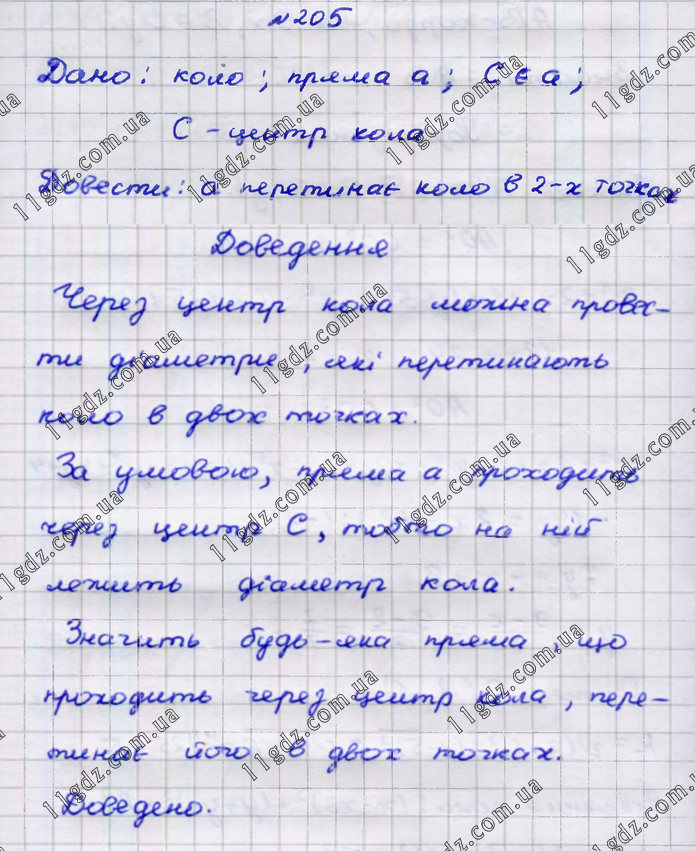 № 205
Дано: коло; пряма a; C ∈ a;
C – центр кола
Довести: a перетинає коло в 2-х точках
Доведення
Через центр кола можна провес-
ти діаметри, які перетинають
коло в двох точках.
За умовою, пряма a проходить
через центр C, тобто на ній
лежить діаметр кола.
Значить будь-яка пряма, що
проходить через центр кола, пере-
тинає його в двох точках.
Доведено.
11gdz.com.ua